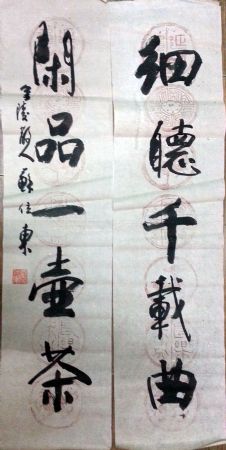 細聽千載曲
閑品一壺茶
金陵散人蘇信東